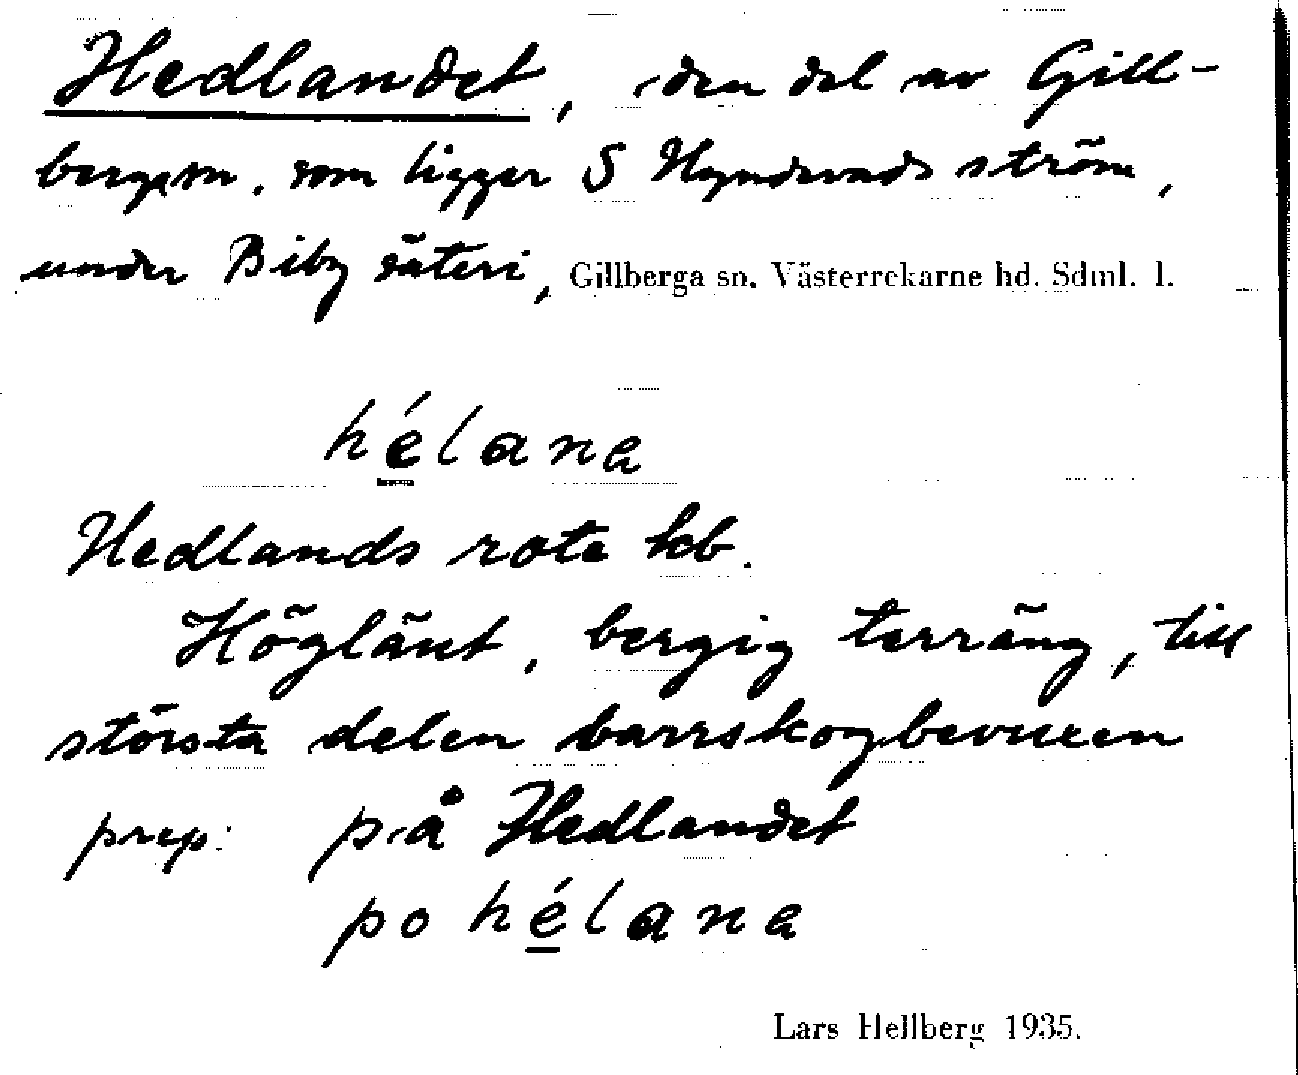 Hedlandet, den del av Gill-
bergasn. som ligger S Hyndevads ström,
under Biby säteri, Gillberga sn. Västerrekarne hd. Sdml. l.
hélana
Hedlands rote kb.
Höglänt, bergig terräng, till
största delen barrskogbevuxen
prep: på Hedlandet
po hélana
Lars Hellberg 1935.